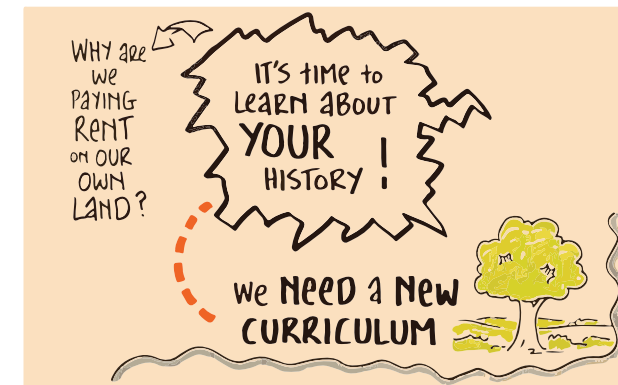 WHY aRe
we
PaYiNG
ReNT
oN OUR
OWN
LaND?
iT'S tiMe to
LeaRN aBOUT
YOUR
HiSTORY!
We NeeD a NeW
CURRiCULUM